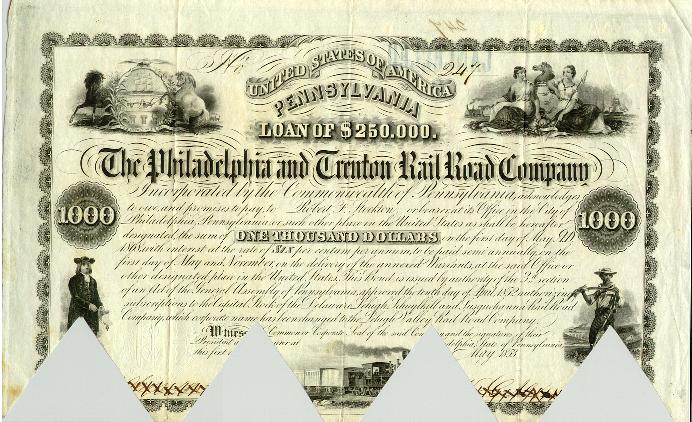 No 247
UNITED STATES OF AMERICA
PENNSYLVANIA
LOAN OF $250.000.
The Philadelphia and Trenton Rail Road Company
Incorporated by the Commonwealth of Pennsylvania, acknowledges
1000
to owe and promises to pay to Robert F. Stockton or bearer at its Office in the City of
1000
Philadelphia, Pennsylvania, or such other place in the United States as shall be hereafter
designated, the sum of ONE THOUSAND DOLLARS on the first day of May, AD
1868 with interest at the rate of six per centum per annum to be paid semi annually on the
first day of May and November, on the delivery of the annexed Warrants, at the said Office or
other designated place in the United States. This Bond is issued by authority of the 3d section
of an Act of the General Assembly of Pennsylvania, approved the tenth day of April 1852, authorizing
subscriptions to the Capital Stock of the Delaware, Lehigh, Schuylkill and Susquehanna Rail Road
Company, which corporate name has been changed to the Lehigh Valley Rail Road Company.
Witness Common Corporate Seal of the said Company and the signature of their
President at Philadelphia, State of Pennsylvania,
this first May 1853